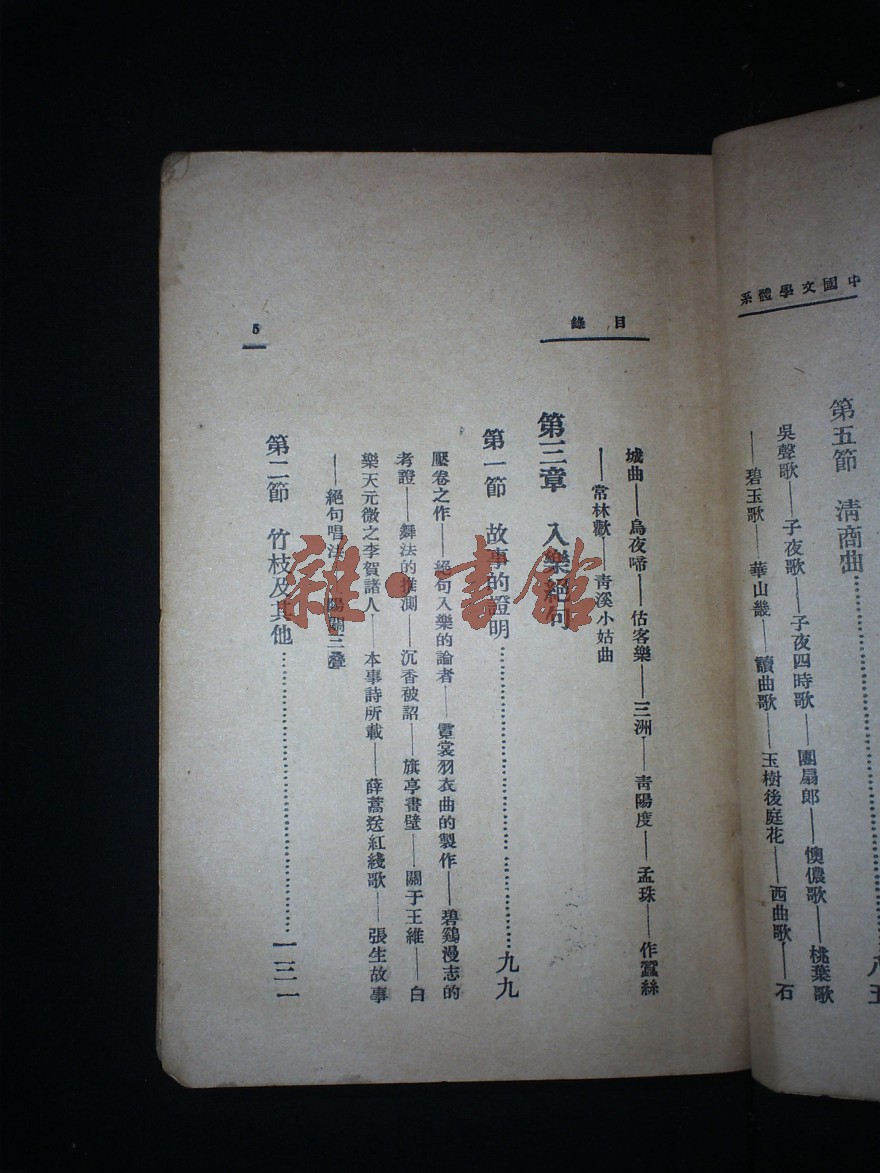 中國文學體系
第五節　清商曲
八五
吳聲歌——子夜歌——子夜四時歌——團扇郎——懊儂歌——桃葉歌
——碧玉歌——華山畿——讀曲歌——玉樹後庭花——西曲歌——石
目錄
城曲——烏夜啼——估客樂——三洲——青陽度——孟珠——作蠶絲
——常林歡——青溪小姑曲
第三章　入樂絕句
第一節　故事的證明……九九
壓卷之作——絕句入樂的論者——霓裳羽衣曲的製作——碧鷄漫志的
考證——舞法的推測——沉香被詔——旗亭畫壁——關于王維——白
樂天元微之李賀諸人——本事詩所載——薛蒿送紅綫歌——張生故事
——絕句唱法——陽關三叠
第二節　竹枝及其他……一三一
5
雜·書館